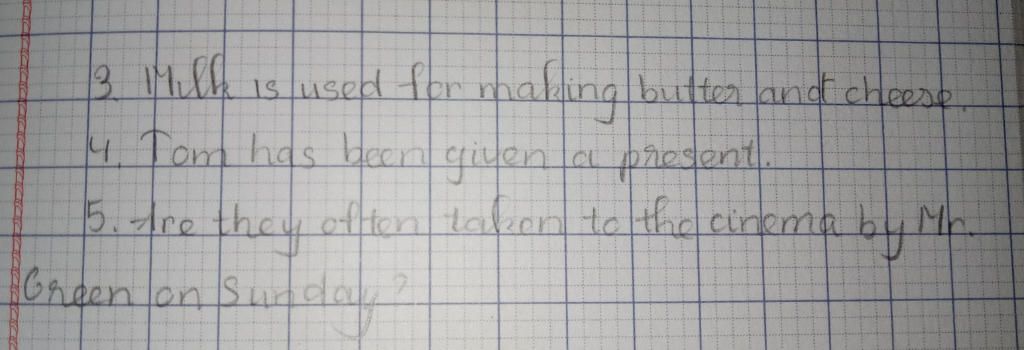 3. Milk is used for making butter and cheese.
4. Tom has been given a present.
5. Are they often taken to the cinema by Mr.
Green on Sunday?